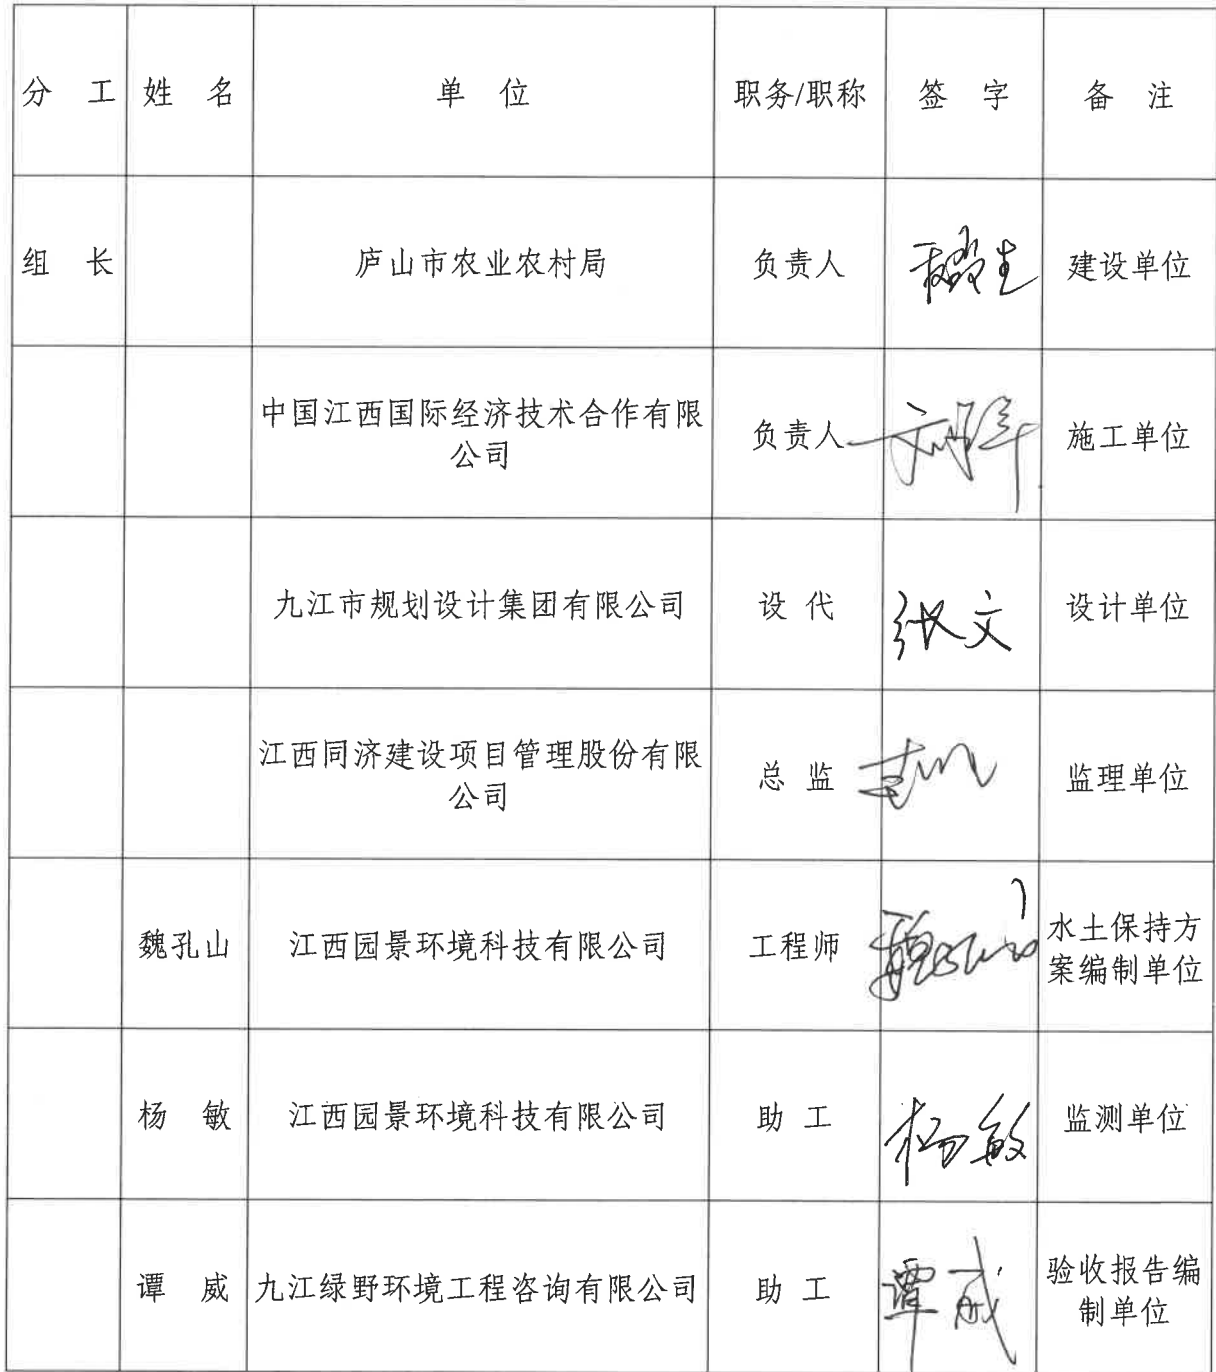 分 工 姓 名 单 位 职务/职称 签 字 备 注
组 长 庐山市农业农村局 负责人 建设单位
中国江西国际经济技术合作有限
公司 负责人 施工单位
九江市规划设计集团有限公司 设 代 张文 设计单位
江西同济建设项目管理股份有限
公司 总 监 监理单位
魏孔山 江西园景环境科技有限公司 工程师 魏孔山 水土保持方
案编制单位
杨 敏 江西园景环境科技有限公司 助 工 杨敏 监测单位
谭 威 九江绿野环境工程咨询有限公司 助 工 谭威 验收报告编
制单位